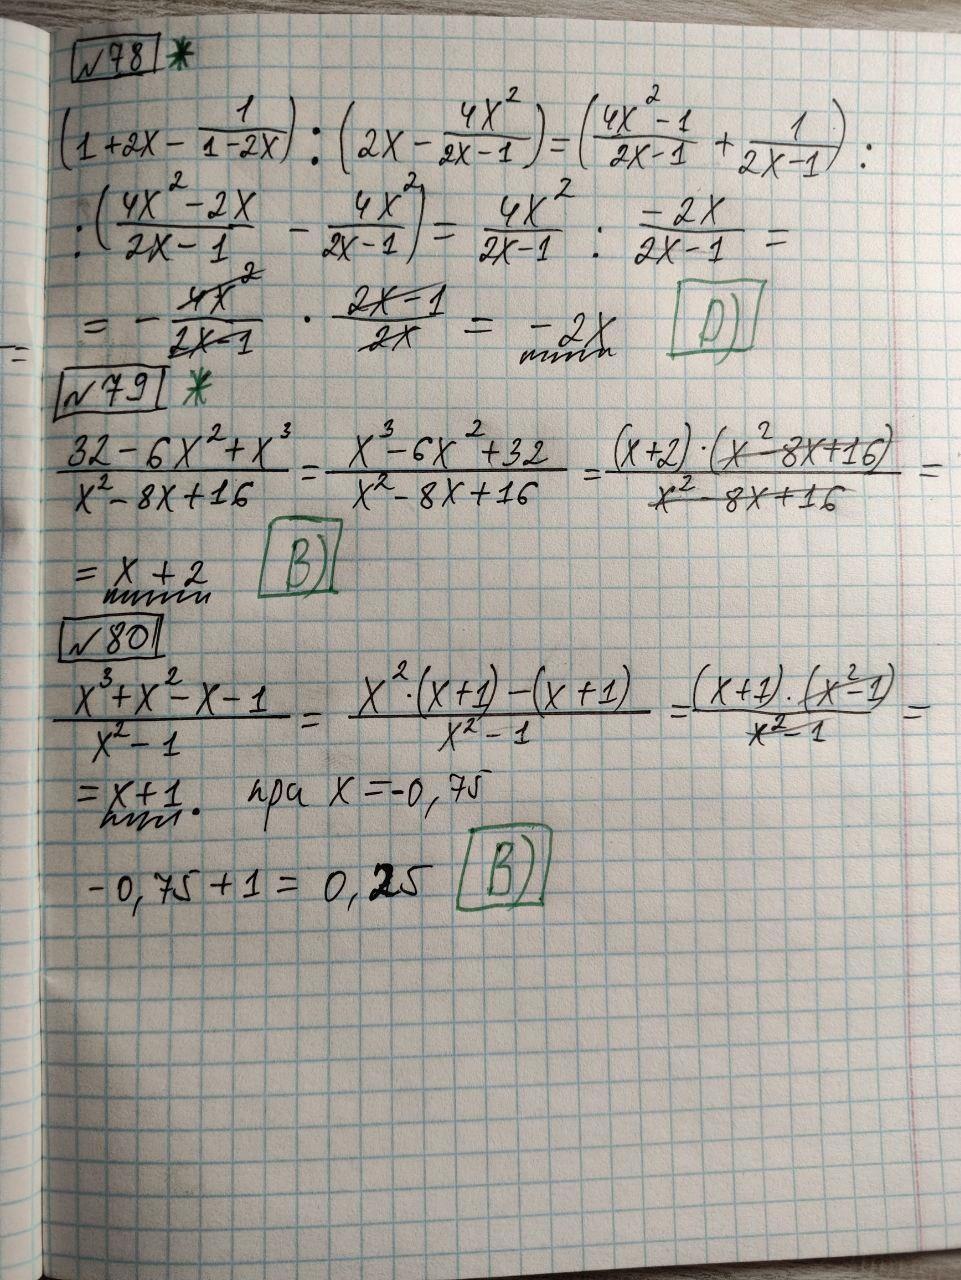 №78 *
(1+2x - 1/(1-2x)) : (2x - 4x²/(2x-1)) = ((4x²-1)/(2x-1) + 1/(2x-1)) :
: ((4x²-2x)/(2x-1) - 4x²/(2x-1)) = 4x²/(2x-1) : -2x/(2x-1) =
= - 4x²/(2x-1) · (2x-1)/2x = -2x D)
=
№79 *
(32-6x²+x³)/(x²-8x+16) = (x³-6x²+32)/(x²-8x+16) = (x+2)·(x²-8x+16)/(x²-8x+16) =
= x+2 B)
№80
(x³+x²-x-1)/(x²-1) = (x²·(x+1)-(x+1))/(x²-1) = (x+1)·(x²-1)/(x²-1) =
= x+1. при x=-0,75
-0,75+1 = 0,25 B)